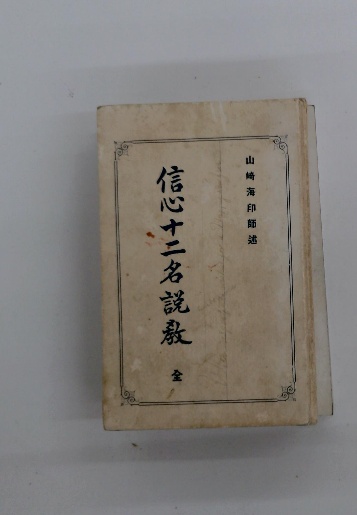 山崎海印師述
信心十二名説教 全